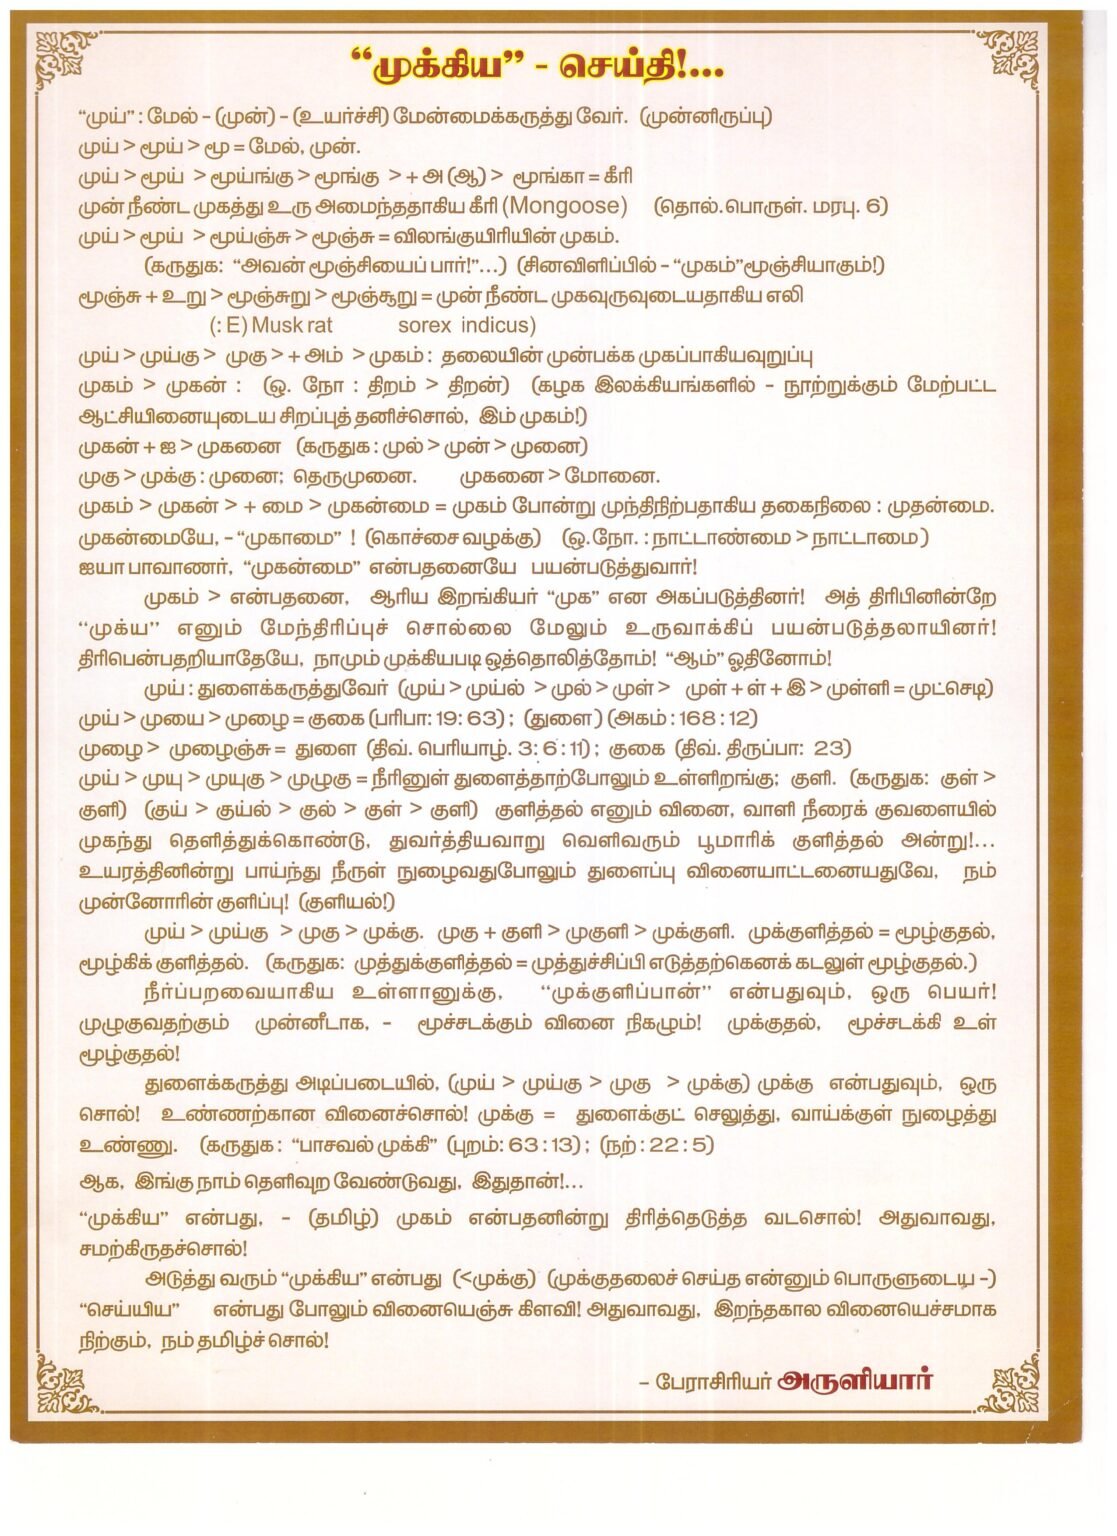 “முக்கிய” - செய்தி!...
“முய்” : மேல் - (முன்) - (உயர்ச்சி) மேன்மைக்கருத்து வேர். (முன்னிருப்பு)
முய் > மூய் > மூ = மேல், முன்.
முய் > மூய் > மூய்ங்கு > மூங்கு > + அ (ஆ) > மூங்கா = கீரி
முன் நீண்ட முகத்து உரு அமைந்ததாகிய கீரி (Mongoose) (தொல்.பொருள். மரபு. 6)
முய் > மூய் > மூய்ஞ்சு > மூஞ்சு = விலங்குயிரியின் முகம்.
(கருதுக: “அவன் மூஞ்சியைப் பார்!”...) (சினவிளிப்பில் - “முகம்”மூஞ்சியாகும்!)
மூஞ்சு + உறு > மூஞ்சுறு > மூஞ்சூறு = முன் நீண்ட முகவுருவுடையதாகிய எலி
(: E) Musk rat sorex indicus)
முய் > முய்கு > முகு > + அம் > முகம் : தலையின் முன்பக்க முகப்பாகியவுறுப்பு
முகம் > முகன் : (ஒ. நோ : திறம் > திறன்) (கழக இலக்கியங்களில் - நூற்றுக்கும் மேற்பட்ட
ஆட்சியினையுடைய சிறப்புத் தனிச்சொல், இம் முகம்!)
முகன் + ஐ > முகனை (கருதுக : முல் > முன் > முனை)
முகு > முக்கு : முனை; தெருமுனை. முகனை > மோனை.
முகம் > முகன் > + மை > முகன்மை = முகம் போன்று முந்திநிற்பதாகிய தகைநிலை : முதன்மை.
முகன்மையே, - “முகாமை” ! (கொச்சை வழக்கு) (ஒ.நோ. : நாட்டாண்மை > நாட்டாமை)
ஐயா பாவாணர், “முகன்மை” என்பதனையே பயன்படுத்துவார்!
முகம் > என்பதனை, ஆரிய இறங்கியர் “முக” என அகப்படுத்தினர்! அத் திரிபினின்றே
“முக்ய” எனும் மேந்திரிப்புச் சொல்லை மேலும் உருவாக்கிப் பயன்படுத்தலாயினர்!
திரிபென்பதறியாதேயே, நாமும் முக்கியபடி ஒத்தொலித்தோம்! “ஆம்” ஓதினோம்!
முய் : துளைக்கருத்துவேர் (முய் > முய்ல் > முல் > முள் > முள் + ள் + இ > முள்ளி = முட்செடி)
முய் > முயை > முழை = குகை (பரிபா: 19: 63) ; (துளை) (அகம் : 168 : 12)
முழை > முழைஞ்சு = துளை (திவ். பெரியாழ். 3: 6 : 11) ; குகை (திவ். திருப்பா: 23)
முய் > முயு > முயுகு > முழுகு = நீரினுள் துளைத்தாற்போலும் உள்ளிறங்கு; குளி. (கருதுக: குள் >
குளி) (குய் > குய்ல் > குல் > குள் > குளி) குளித்தல் எனும் வினை, வாளி நீரைக் குவளையில்
முகந்து தெளித்துக்கொண்டு, துவர்த்தியவாறு வெளிவரும் பூமாரிக் குளித்தல் அன்று!...
உயரத்தினின்று பாய்ந்து நீருள் நுழைவதுபோலும் துளைப்பு வினையாட்டனையதுவே, நம்
முன்னோரின் குளிப்பு! (குளியல்!)
முய் > முய்கு > முகு > முக்கு. முகு + குளி > முகுளி > முக்குளி. முக்குளித்தல் = மூழ்குதல்,
மூழ்கிக் குளித்தல். (கருதுக: முத்துக்குளித்தல் = முத்துச்சிப்பி எடுத்தற்கெனக் கடலுள் மூழ்குதல்.)
நீர்ப்பறவையாகிய உள்ளானுக்கு, “முக்குளிப்பான்” என்பதுவும், ஒரு பெயர்!
முழுகுவதற்கும் முன்னீடாக, - மூச்சடக்கும் வினை நிகழும்! முக்குதல், மூச்சடக்கி உள்
மூழ்குதல்!
துளைக்கருத்து அடிப்படையில், (முய் > முய்கு > முகு > முக்கு) முக்கு என்பதுவும், ஒரு
சொல்! உண்ணற்கான வினைச்சொல்! முக்கு = துளைக்குட் செலுத்து, வாய்க்குள் நுழைத்து
உண்ணு. (கருதுக : “பாசவல் முக்கி” (புறம்: 63 : 13) ; (நற் : 22 : 5)
ஆக, இங்கு நாம் தெளிவுற வேண்டுவது, இதுதான்!...
“முக்கிய” என்பது, - (தமிழ்) முகம் என்பதனின்று திரித்தெடுத்த வடசொல்! அதுவாவது,
சமற்கிருதச்சொல்!
அடுத்து வரும் “முக்கிய” என்பது (<முக்கு) (முக்குதலைச் செய்த என்னும் பொருளுடைய -)
“செய்யிய” என்பது போலும் வினையெஞ்சு கிளவி! அதுவாவது, இறந்தகால வினையெச்சமாக
நிற்கும், நம் தமிழ்ச் சொல்!
- பேராசிரியர் அருளியார்